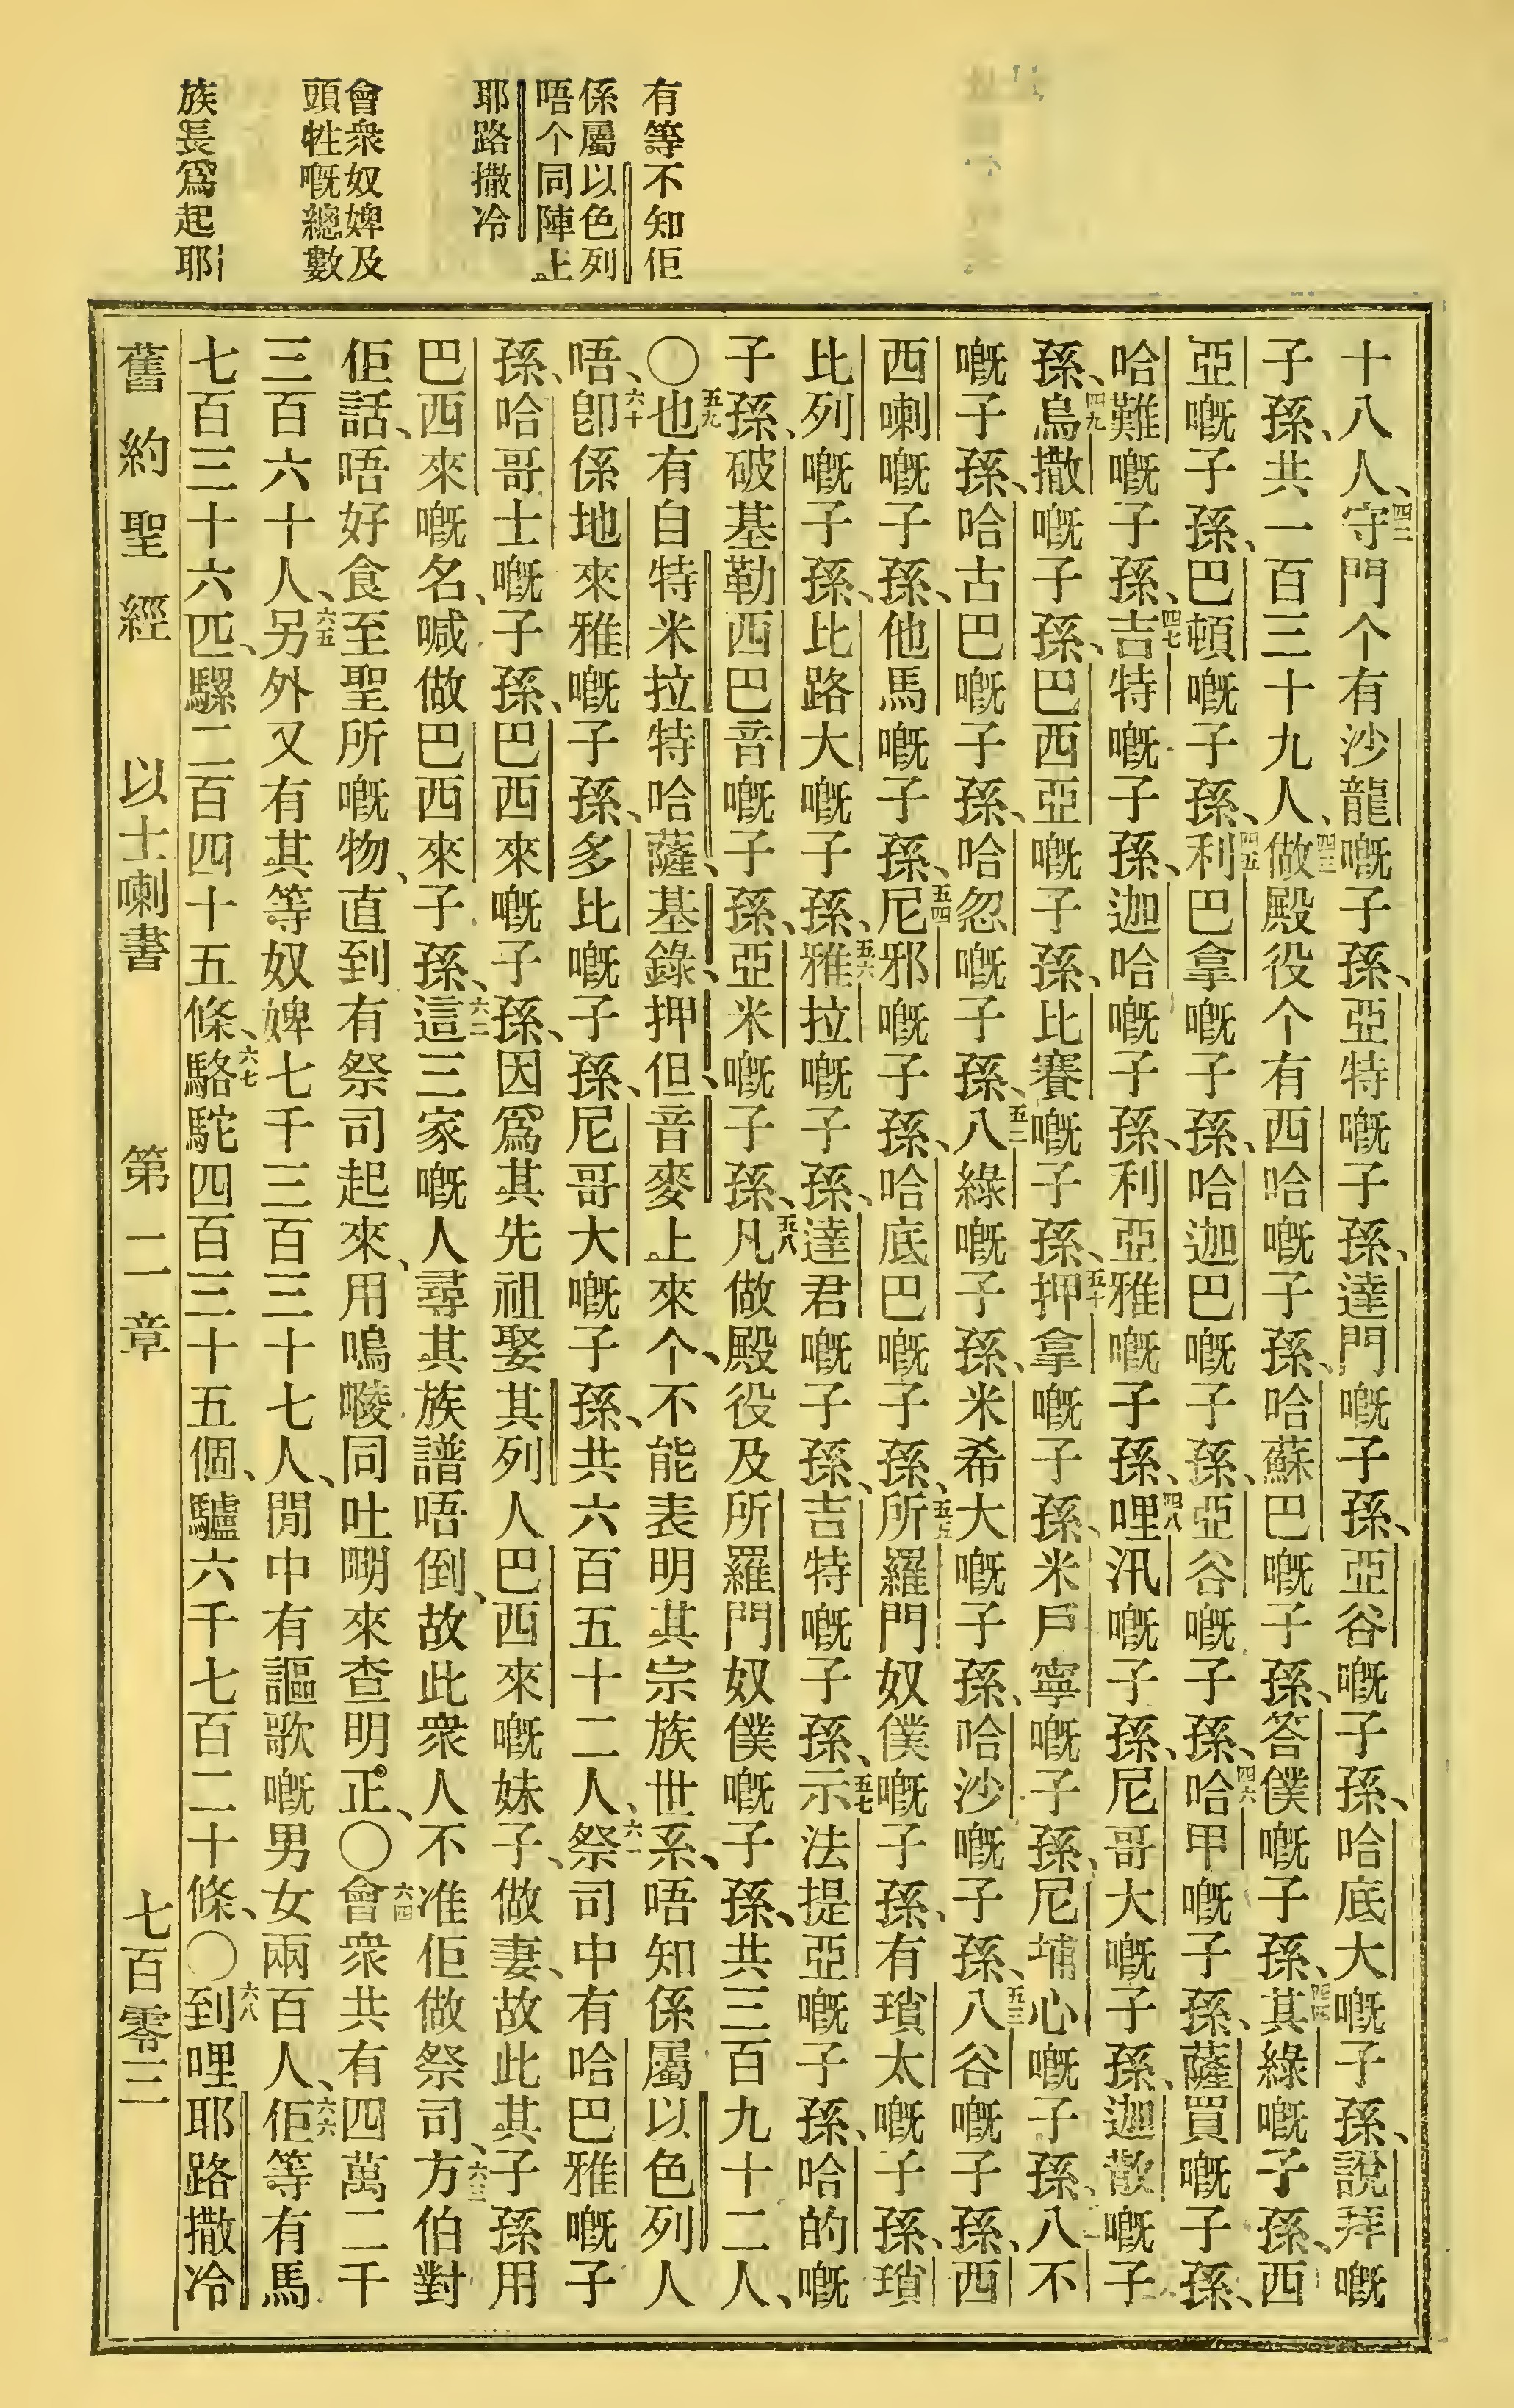 有等不知佢
係屬以色列
唔个同陣上
耶路撒冷
會衆奴婢及
頭牲嘅總數
族長爲起耶
十八人、四二守門个有沙龍嘅子孫、亞特嘅子孫、達門嘅子孫、亞谷嘅子孫、哈底大嘅子孫、說拜嘅
子孫、共一百三十九人、四三做殿役个有西哈嘅子孫、哈蘇巴嘅子孫、答僕嘅子孫、四四其綠嘅子孫、西
亞嘅子孫、巴頓嘅子孫、四五利巴拿嘅子孫、哈迦巴嘅子孫、亞谷嘅子孫、四六哈甲嘅子孫、薩買嘅子孫、
哈難嘅子孫、四七吉特嘅子孫、迦哈嘅子孫、利亞雅嘅子孫、四八哩汛嘅子孫、尼哥大嘅子孫、迦散嘅子
孫、四九烏撒嘅子孫、巴西亞嘅子孫、比賽嘅子孫、五十押拿嘅子孫、米戶寧嘅子孫、尼埔心嘅子孫、八不
嘅子孫、哈古巴嘅子孫、哈忽嘅子孫、五二八綠嘅子孫、米希大嘅子孫、哈沙嘅子孫、五三八谷嘅子孫、西
西喇嘅子孫、他馬嘅子孫、五四尼邪嘅子孫、哈底巴嘅子孫、五五所羅門奴僕嘅子孫、有瑣太嘅子孫、瑣
比列嘅子孫、比路大嘅子孫、五六雅拉嘅子孫、達君嘅子孫、吉特嘅子孫、五七示法提亞嘅子孫、哈的嘅
子孫、破基勒西巴音嘅子孫、亞米嘅子孫、五八凡做殿役及所羅門奴僕嘅子孫、共三百九十二人、
〇五九也有自特米拉特哈薩、基錄、押但、音麥上來个、不能表明其宗族世系、唔知係屬以色列人
唔、六十卽係地來雅嘅子孫、多比嘅子孫、尼哥大嘅子孫、共六百五十二人、六一祭司中有哈巴雅嘅子
孫、哈哥士嘅子孫、巴西來嘅子孫、因爲其先祖娶其列人巴西來嘅妹子、做妻、故此其子孫用
巴西來嘅名、喊做巴西來子孫、六二這三家嘅人尋其族譜唔倒、故此衆人不准佢做祭司、六三方伯對
佢話、唔好食至聖所嘅物、直到有祭司起來、用嗚㖫同吐𠵼來查明正、〇六四會衆共有四萬二千
三百六十人、六五另外又有其等奴婢七千三百三十七人、閒中有謳歌嘅男女兩百人、六六佢等有馬
七百三十六匹、騾二百四十五條、六七駱駝四百三十五個、驢六千七百二十條、〇六八到哩耶路撒冷
舊約聖經 以士喇書 第二章 七百零三